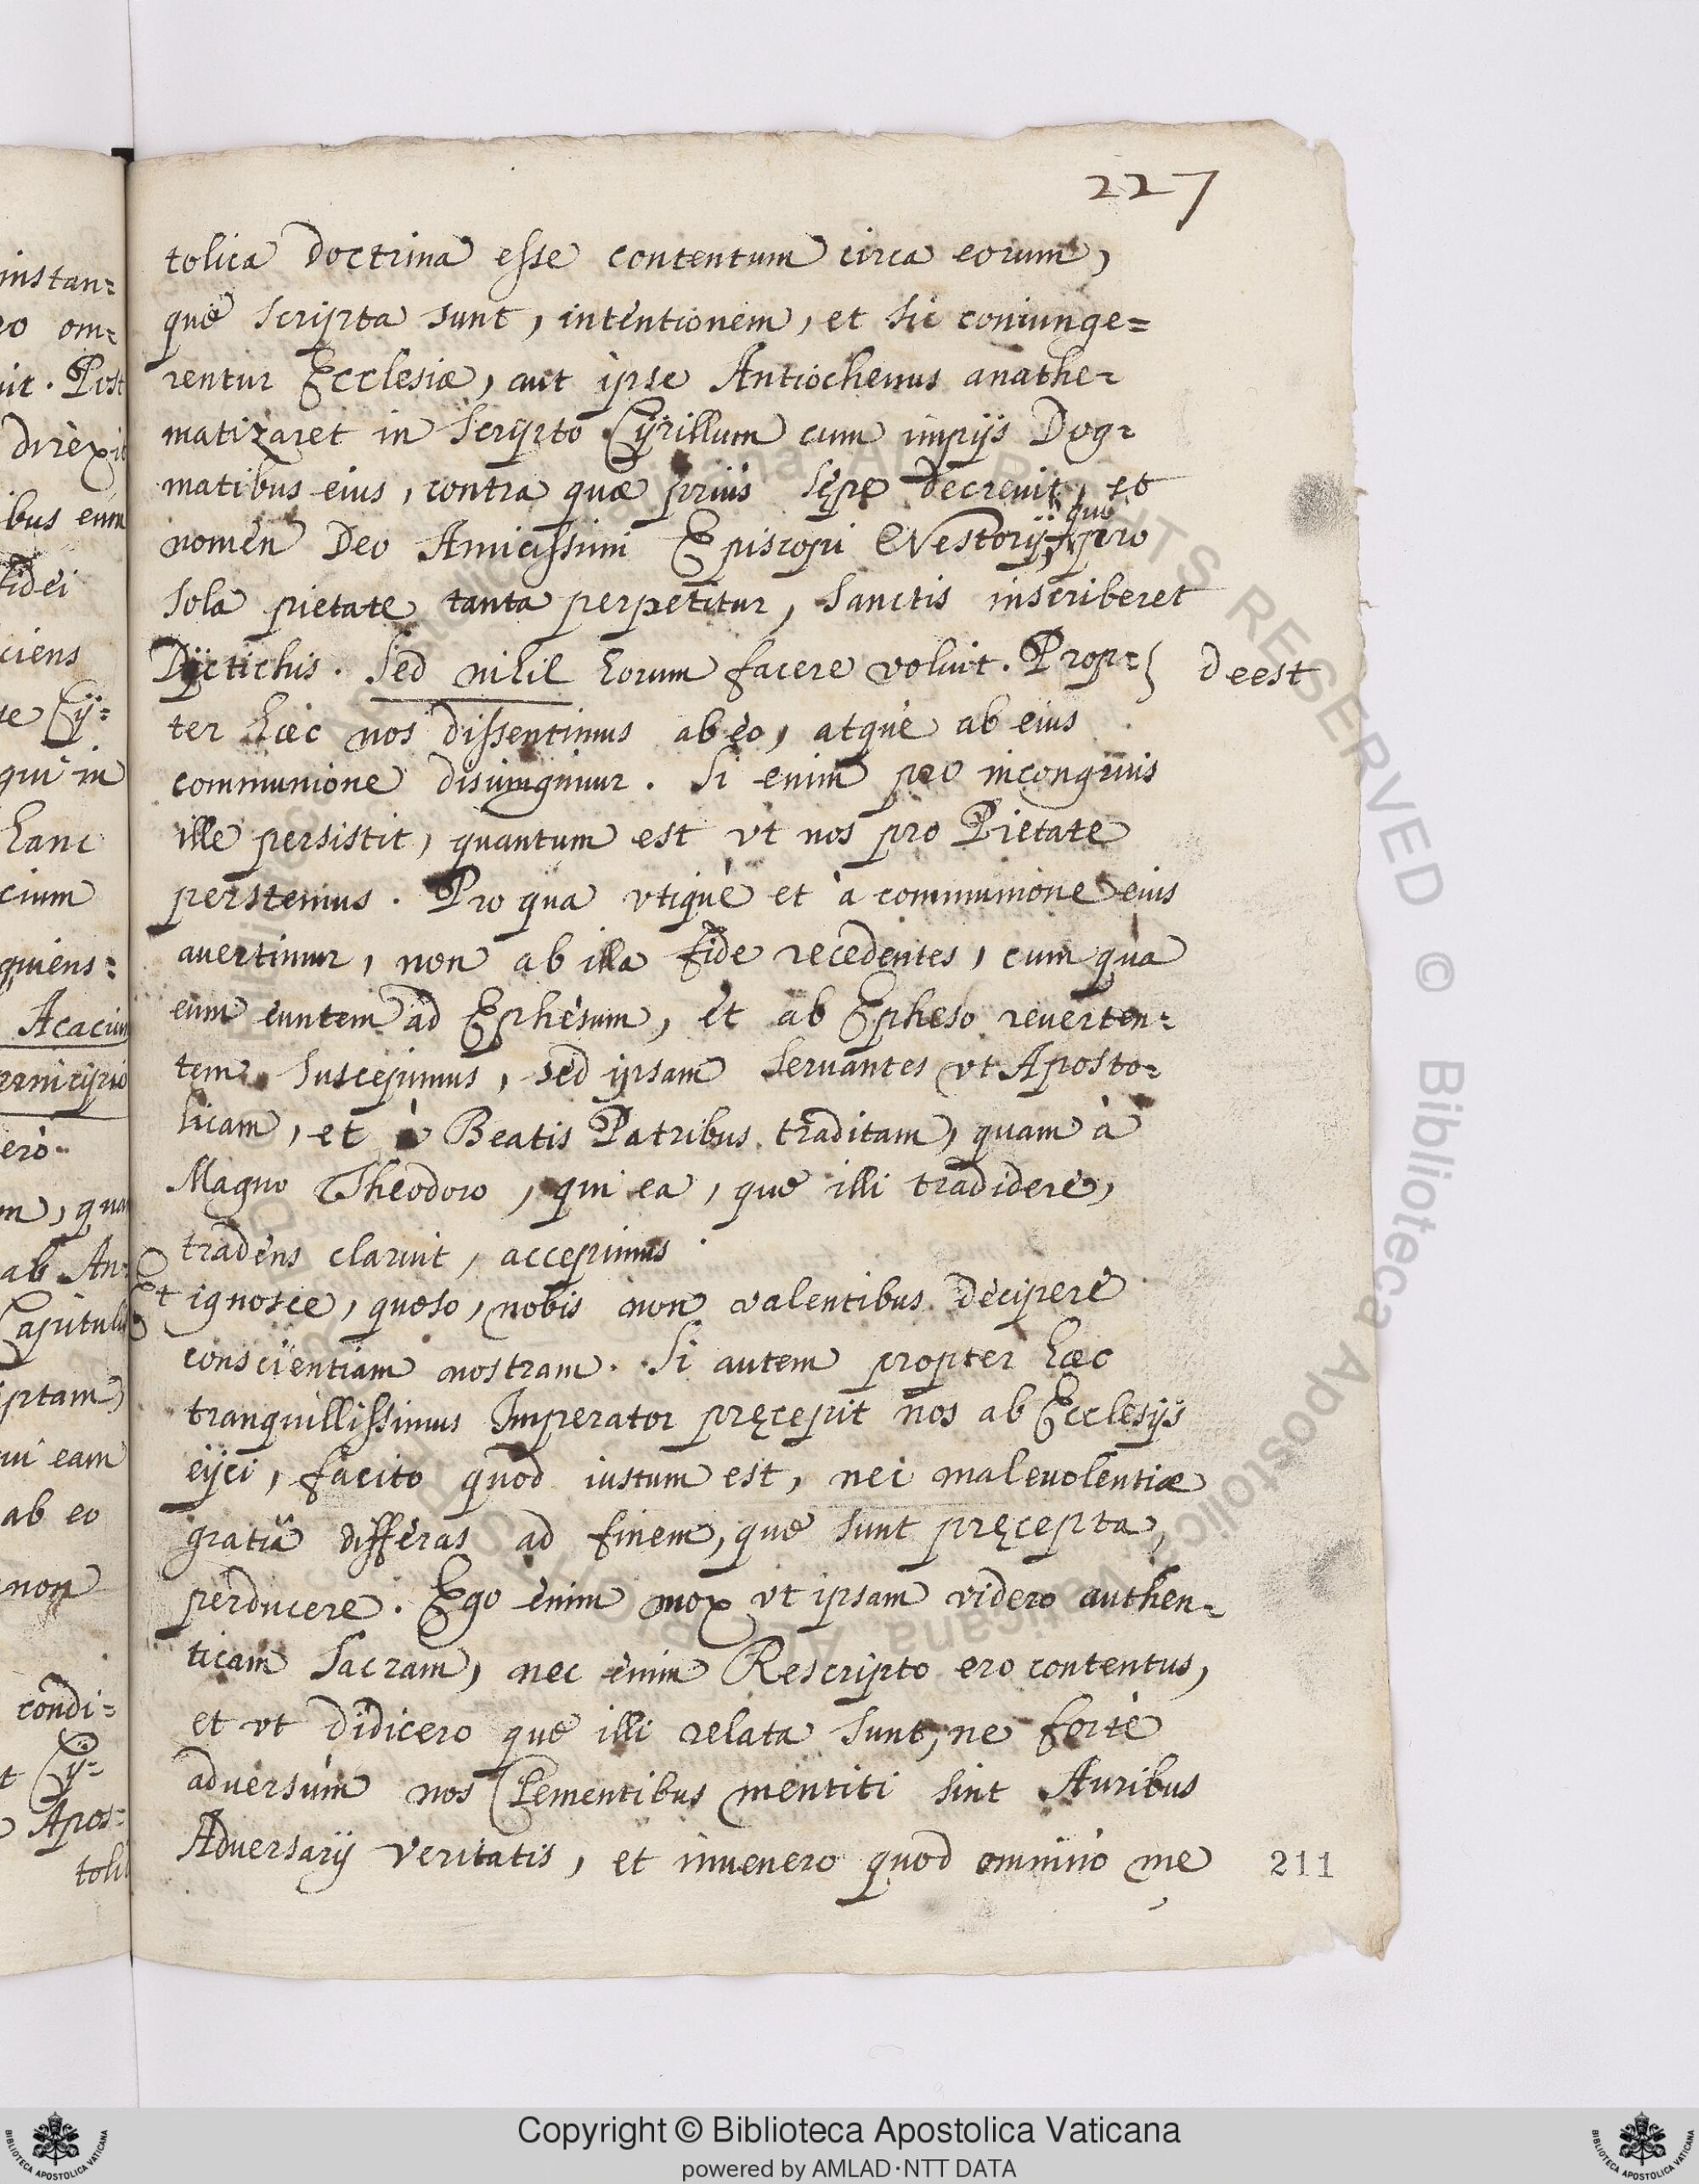 227
tolica doctrina esse contentum circa eorum,
quę scripta sunt, intentionem, et sic coniunge=
rentur Ecclesiæ, aut ipse Antiochenus anathe=
matizaret in scripto Cyrillum cum impijs Dog=
matibus eius, contra quæ prius sępe decreuit, et
nomen Deo Amicissimi Episcopi Nestorij, qui pro
sola pietate tanta perpetitur, sanctis inscriberet
Dyctichis. Sed nihil horum facere voluit. Prop= deest
ter hæc nos dissentimus ab eo, atque ab eius
communione disiungimur. Si enim pro incongruis
ille persistit, quantum est vt nos pro Pietate
perstemus. Pro qua vtique et à communione eius
auertimur, non ab illa fide recedentes, cum qua
eum euntem ad Ephesum, et ab Epheso reuerten=
tem suscepimus, sed ipsam seruantes vt Aposto=
licam, et à Beatis Patribus traditam, quam à
Magno Theodoro, qui ea, quę illi tradidere,
tradens claruit, accepimus.
Et ignosce, quęso, nobis non valentibus decipere
conscientiam nostram. Si autem propter hæc
tranquillissimus Imperator pręcepit nos ab Ecclesijs
eijci, facito quod iustum est, nec maleuolentiæ
gratiâ differas ad finem, quę sunt pręcepta,
perducere. Ego enim mox vt ipsam videro authen=
ticam Sacram, nec enim Rescripto ero contentus,
et vt didicero quę illi relata sunt, ne forte
aduersum nos Clementibus mentiti sint Auribus
Aduersarij Veritatis, et inuenero quod omnino me
211
instan=
ro om=
uit. Post
direxit
ibus eum
fidei
ciens
Cy=
qui in
hanc
cium
quiens=
Acacium
principio
erò
m, quam
ab An=
Capitulis
iptam
ui eam
ab eo
non
condi=
t Cy=
Apos=
toli
Copyright © Biblioteca Apostolica Vaticana
powered by AMLAD·NTT DATA